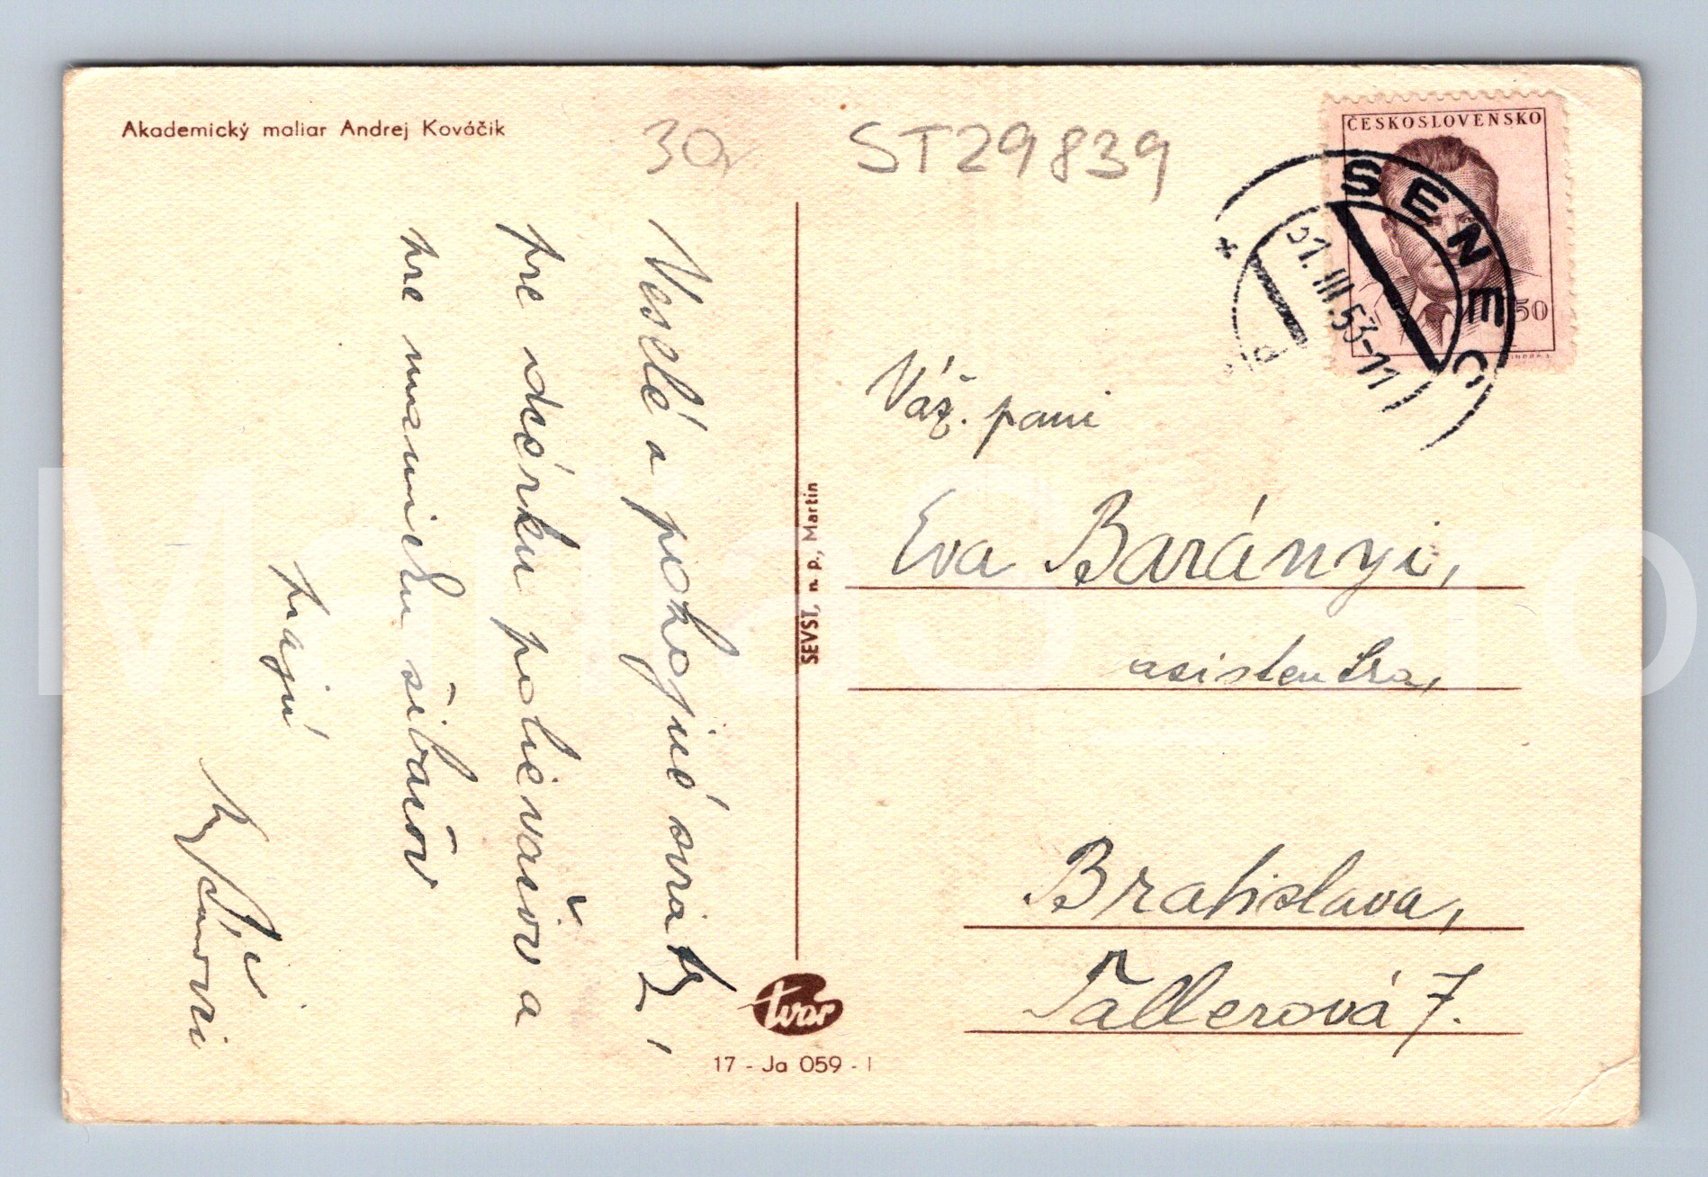 Akademický maliar Andrej Kováčik
30,
ST29839
ČESKOSLOVENSKO
50
SENEC
31. III. 53-11
Veselé a pokojné sviatky,
pre dcérku polievačov a
pre mamičku šibačov
prajú
Váž. pani
Eva Barányi,
asistentka,
Bratislava,
Tallerová 7.
SEVST, n. p., Martin
tvar
17 - Ja 059 - I